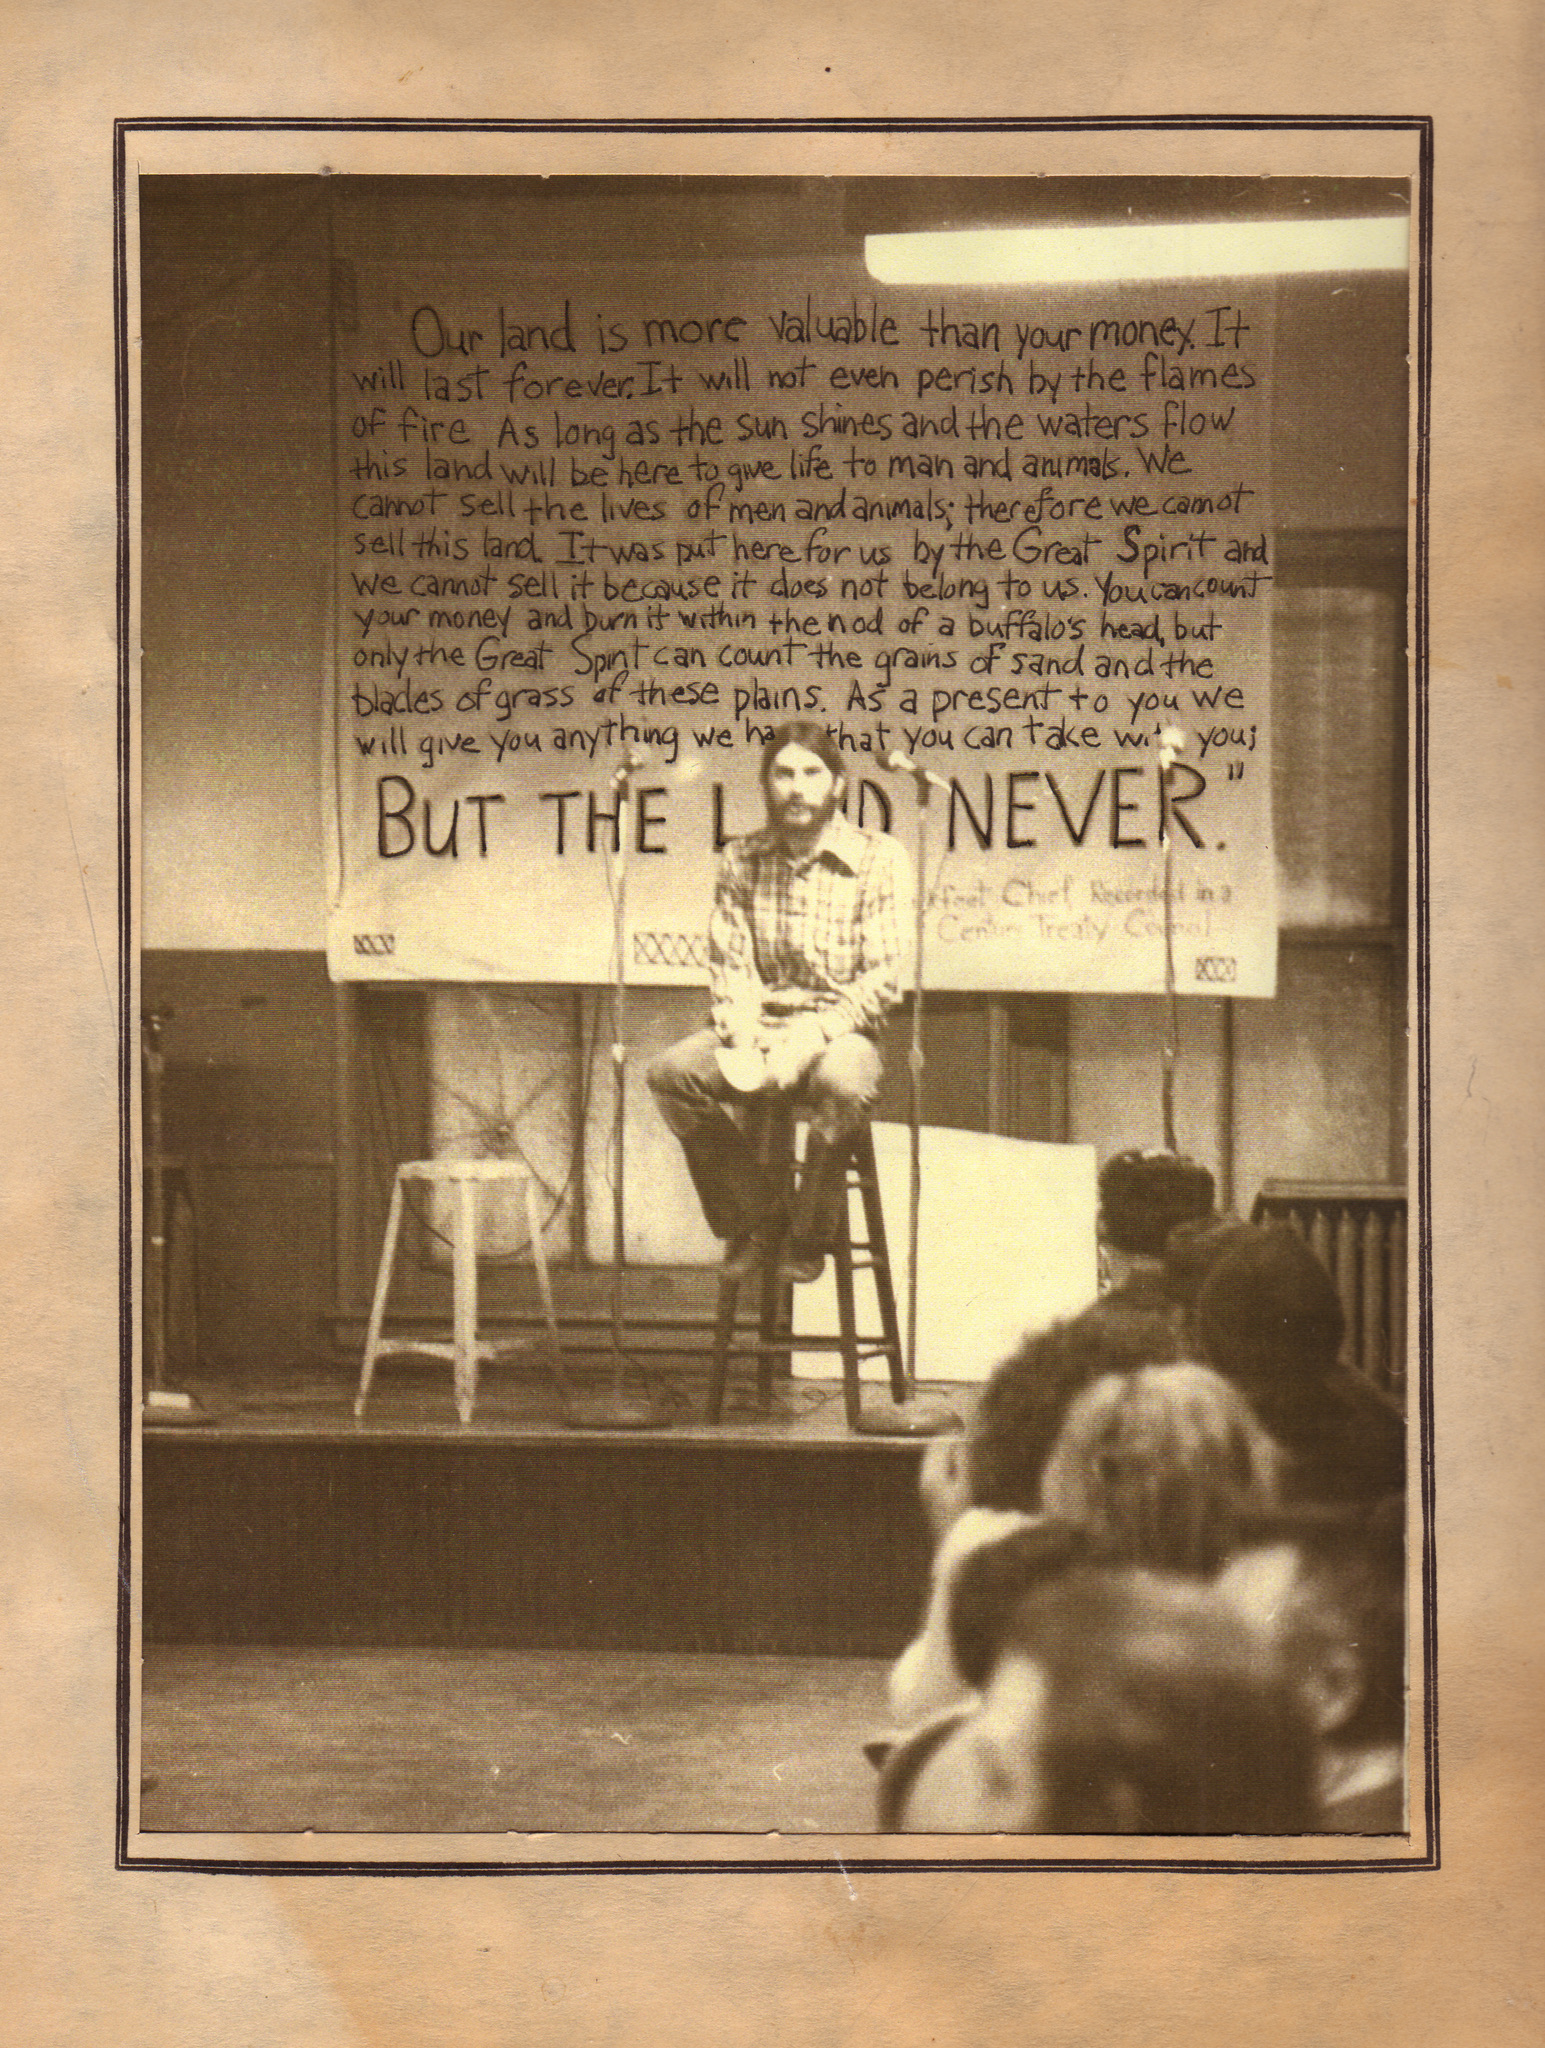 Our land is more valuable than your money. It
will last forever. It will not even perish by the flames
of fire As long as the sun shines and the waters flow
this land will be here to give life to man and animals. We
cannot sell the lives of men and animals; therefore we cannot
sell this land. It was put here for us by the Great Spirit and
we cannot sell it because it does not belong to us. You can count
your money and burn it within the nod of a buffalo's head, but
only the Great Spirit can count the grains of sand and the
blades of grass of these plains. As a present to you we
will give you anything we ha that you can take wi you;
BUT THE L D NEVER."
kfeet Chief Recorded in a
Century Treaty Council